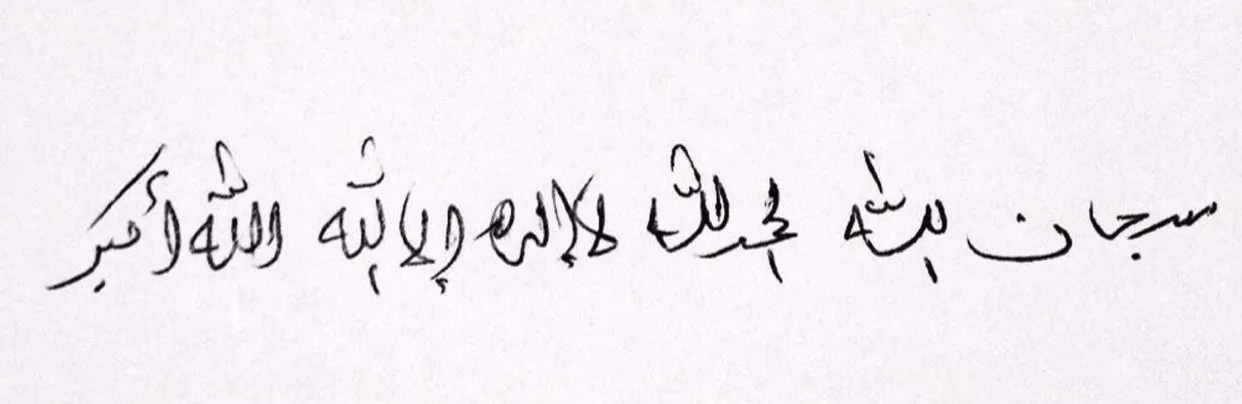 سبحان الله الحمد لله لا إله إلا الله الله أكبر